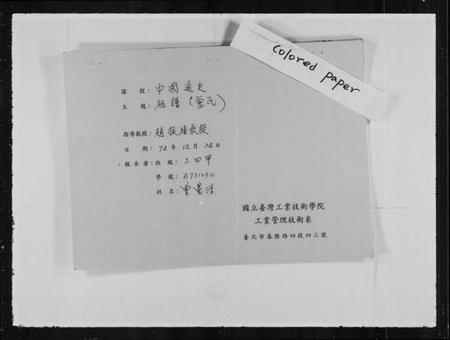 colored paper
課 程: 中國通史
主 題: 族譜(曾氏)
指導教授: 趙振績教授
日 期: 74年12月26日
報告者: 班級: 二四甲
學號: A731030
姓名: 曾憲浩
國立臺灣工業技術學院
工業管理技術系
臺北市基隆路四段四三號